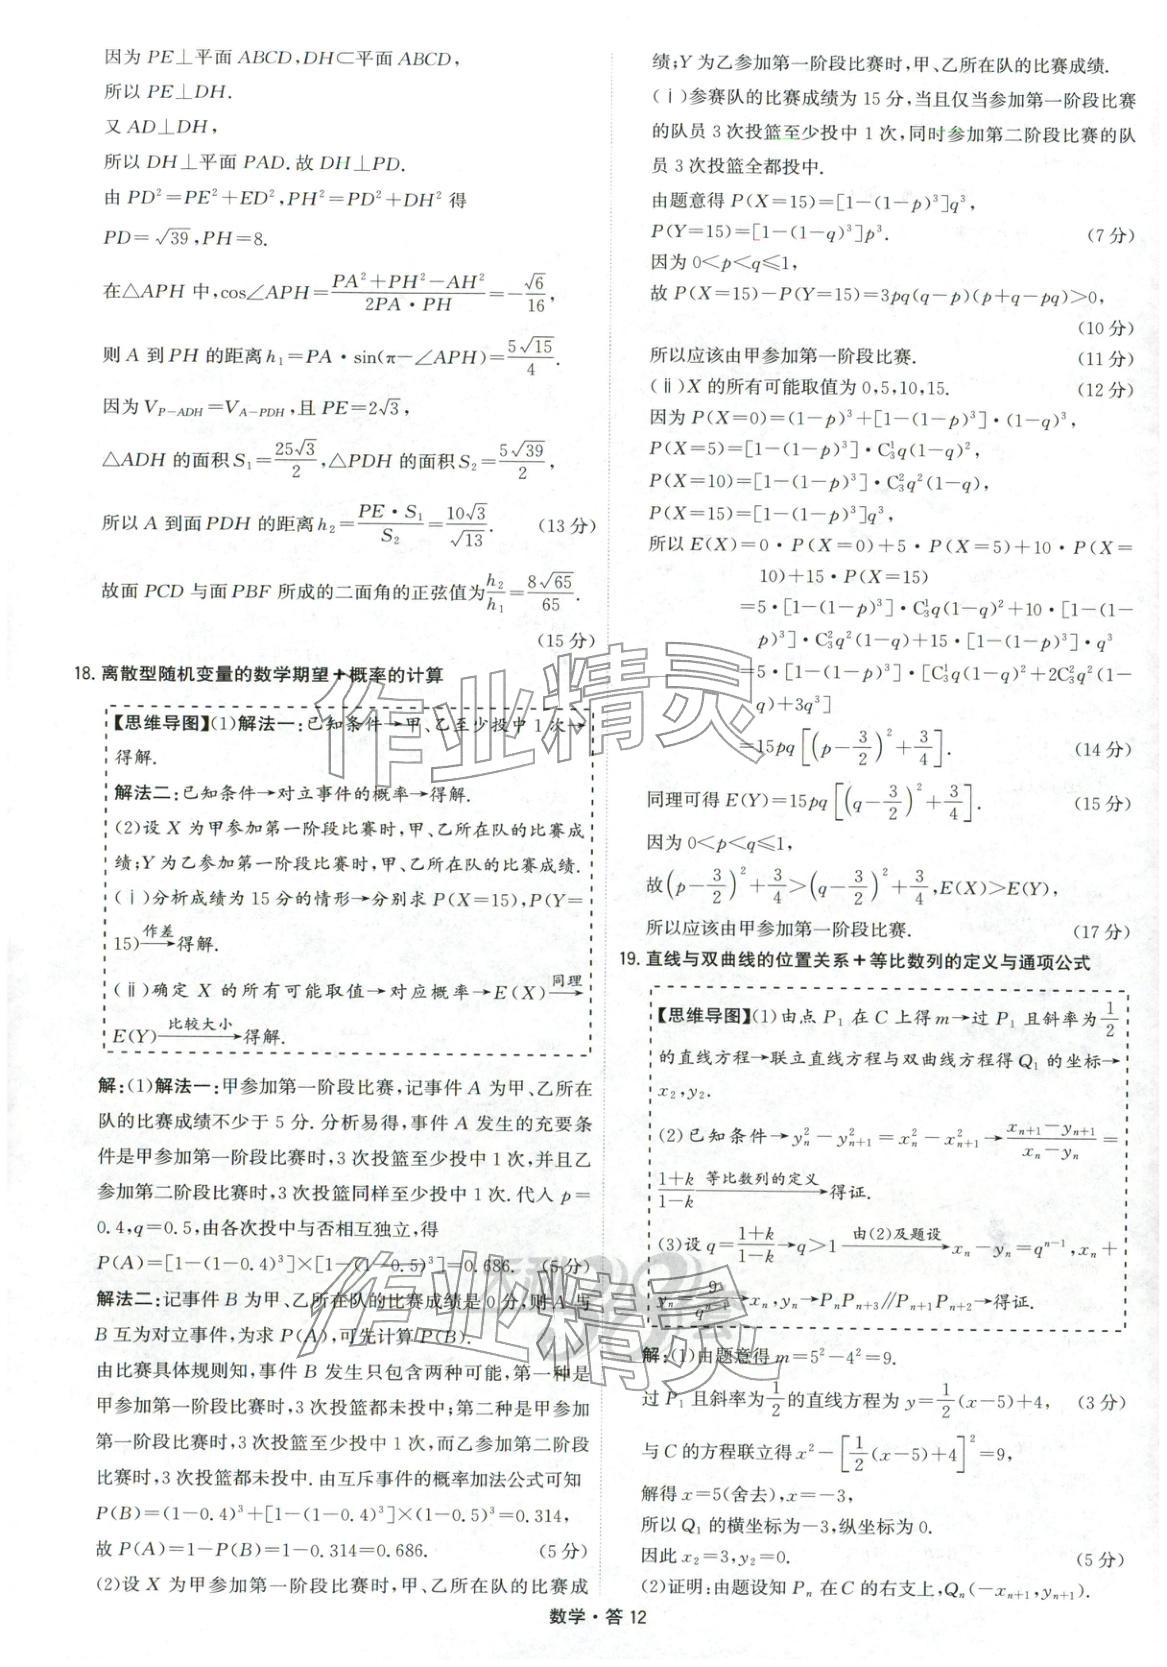 因为 PE⊥平面 ABCD,DH⊂平面 ABCD,
所以 PE⊥DH.
又 AD⊥DH,
所以 DH⊥平面 PAD.故 DH⊥PD.
由 PD²=PE²+ED²,PH²=PD²+DH² 得
PD=√39,PH=8.
在△APH 中,cos∠APH=(PA²+PH²-AH²)/(2PA·PH)=-√6/16,
则 A 到 PH 的距离 h₁=PA·sin(π-∠APH)=5√15/4.
因为 V_{P-ADH}=V_{A-PDH},且 PE=2√3,
△ADH 的面积 S₁=25√3/2,△PDH 的面积 S₂=5√39/2,
所以 A 到面 PDH 的距离 h₂=PE·S₁/S₂=10√3/√13. (13 分)
故面 PCD 与面 PBF 所成的二面角的正弦值为 h₂/h₁=8√65/65.
(15 分)
18. 离散型随机变量的数学期望+概率的计算
【思维导图】(1)解法一:已知条件→甲、乙至少投中 1 次→
得解.
解法二:已知条件→对立事件的概率→得解.
(2)设 X 为甲参加第一阶段比赛时,甲、乙所在队的比赛成
绩;Y 为乙参加第一阶段比赛时,甲、乙所在队的比赛成绩.
(ⅰ)分析成绩为 15 分的情形→分别求 P(X=15),P(Y=
15)—作差→得解.
(ⅱ)确定 X 的所有可能取值→对应概率→E(X)—同理→
E(Y)—比较大小→得解.
解:(1)解法一:甲参加第一阶段比赛,记事件 A 为甲、乙所在
队的比赛成绩不少于 5 分.分析易得,事件 A 发生的充要条
件是甲参加第一阶段比赛时,3 次投篮至少投中 1 次,并且乙
参加第二阶段比赛时,3 次投篮同样至少投中 1 次.代入 p=
0.4,q=0.5,由各次投中与否相互独立,得
P(A)=[1-(1-0.4)³]×[1-(1-0.5)³]=0.686. (5 分)
解法二:记事件 B 为甲、乙所在队的比赛成绩是 0 分,则 A 与
B 互为对立事件,为求 P(A),可先计算 P(B).
由比赛具体规则知,事件 B 发生只包含两种可能,第一种是
甲参加第一阶段比赛时,3 次投篮都未投中;第二种是甲参加
第一阶段比赛时,3 次投篮至少投中 1 次,而乙参加第二阶段
比赛时,3 次投篮都未投中.由互斥事件的概率加法公式可知
P(B)=(1-0.4)³+[1-(1-0.4)³]×(1-0.5)³=0.314,
故 P(A)=1-P(B)=1-0.314=0.686. (5 分)
(2)设 X 为甲参加第一阶段比赛时,甲、乙所在队的比赛成
绩;Y 为乙参加第一阶段比赛时,甲、乙所在队的比赛成绩.
(ⅰ)参赛队的比赛成绩为 15 分,当且仅当参加第一阶段比赛
的队员 3 次投篮至少投中 1 次,同时参加第二阶段比赛的队
员 3 次投篮全都投中.
由题意得 P(X=15)=[1-(1-p)³]q³,
P(Y=15)=[1-(1-q)³]p³. (7 分)
因为 0<p<q≤1,
故 P(X=15)-P(Y=15)=3pq(q-p)(p+q-pq)>0,
(10 分)
所以应该由甲参加第一阶段比赛. (11 分)
(ⅱ)X 的所有可能取值为 0,5,10,15. (12 分)
因为 P(X=0)=(1-p)³+[1-(1-p)³]·(1-q)³,
P(X=5)=[1-(1-p)³]·C₃¹q(1-q)²,
P(X=10)=[1-(1-p)³]·C₃²q²(1-q),
P(X=15)=[1-(1-p)³]q³,
所以 E(X)=0·P(X=0)+5·P(X=5)+10·P(X=
10)+15·P(X=15)
=5·[1-(1-p)³]·C₃¹q(1-q)²+10·[1-(1-
p)³]·C₃²q²(1-q)+15·[1-(1-p)³]·q³
=5·[1-(1-p)³][C₃¹q(1-q)²+2C₃²q²(1-
q)+3q³]
=15pq[(p-3/2)²+3/4]. (14 分)
同理可得 E(Y)=15pq[(q-3/2)²+3/4]. (15 分)
因为 0<p<q≤1,
故(p-3/2)²+3/4>(q-3/2)²+3/4,E(X)>E(Y),
所以应该由甲参加第一阶段比赛. (17 分)
19. 直线与双曲线的位置关系+等比数列的定义与通项公式
【思维导图】(1)由点 P₁ 在 C 上得 m→过 P₁ 且斜率为 1/2
的直线方程→联立直线方程与双曲线方程得 Q₁ 的坐标→
x₂,y₂.
(2)已知条件→yₙ²-yₙ₊₁²=xₙ²-xₙ₊₁²→(xₙ₊₁-yₙ₊₁)/(xₙ-yₙ)=
(1+k)/(1-k)—等比数列的定义→得证.
(3)设 q=(1+k)/(1-k)→q>1—由(2)及题设→xₙ-yₙ=qⁿ⁻¹,xₙ+
yₙ=9/qⁿ⁻¹→xₙ,yₙ→PₙPₙ₊₃∥Pₙ₊₁Pₙ₊₂→得证.
解:(1)由题意得 m=5²-4²=9.
过 P₁ 且斜率为 1/2 的直线方程为 y=1/2(x-5)+4, (3 分)
与 C 的方程联立得 x²-[1/2(x-5)+4]²=9,
解得 x=5(舍去),x=-3,
所以 Q₁ 的横坐标为-3,纵坐标为 0.
因此 x₂=3,y₂=0. (5 分)
(2)证明:由题设知 Pₙ 在 C 的右支上,Qₙ(-xₙ₊₁,yₙ₊₁).
数学·答 12
作业精灵
作业精灵